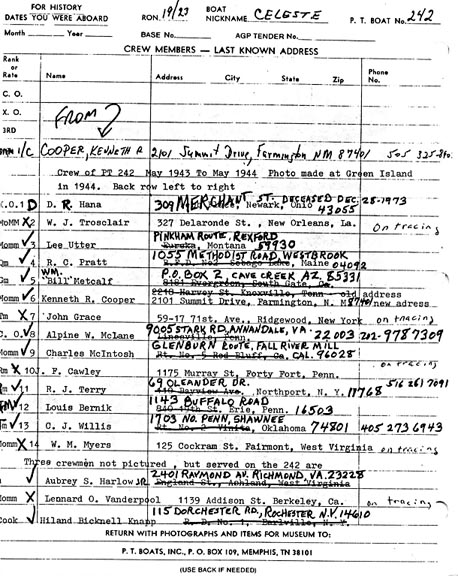 FOR HISTORY
DATES YOU WERE ABOARD RON. 19/23 BOAT NICKNAME CELESTE P. T. BOAT No. 242
Month Year BASE No. AGP TENDER No.
CREW MEMBERS — LAST KNOWN ADDRESS
Rank or Rate Name Address City State Zip Phone No.
C. O.
X. O. FROM?
3RD
1/C COOPER, KENNETH R 2101 Summit Drive, Farmington NM 87401 505 325
Crew of PT 242 May 1943 To May 1944 Photo made at Green Island
in 1944. Back row left to right
X.O.1 D D. R. Hana 309 MERCHANT ST. DECEASED DEC. 28-1973 Newark, Ohio 43055
MoMM X2 W. J. Trosclair 327 Delaronde St., New Orleans, La. on tracing
Momm ✓3 Lee Utter PINKHAM ROUTE, REXFORD Eureka, Montana 59930
✓4 R. C. Pratt 1055 METHODIST ROAD, WESTBROOK R.F.D. No2 Sebago Lake, Maine 04092
Gm ✓5 WM. "Bill" Metcalf P.O. BOX 2, CAVE CREEK AZ. 85331 8181 Evergreen, South Gate, Ca.
Momm ✓6 Kenneth R. Cooper 2218 Harvey St. Knoxville, Tenn old address
2101 Summit Drive, Farmington, N. M 87401 new adress
Tm X7 John Grace 59-17 71st. Ave., Ridgewood, New York on tracing
C. O. ✓8 Alpine W. McLane 9005 STARK RD, ANNANDALE, VA. 22003 202-978 7309 Lincolnville, Penn.
Momm ✓9 Charles McIntosh GLENBURN ROUTE, FALL RIVER MILL CAL. 96028 Rt. No. 5 Red Bluff, Ca.
Rm X 10 J. F. Cawley 1175 Murray St. Forty Fort, Penn. on tracing
✓11 R. J. Terry 69 OLEANDER DR. 440 Bayview Ave. Northport, N. Y. 11768 516 261 7091
✓12 Louis Bernik 1143 BUFFALO ROAD 840 17th St. Erie, Penn. 16503
✓13 C. J. Willis 1703 NO. PENN, SHAWNEE Rt. No. 2 Vinita, Oklahoma 74801 405 273 6943
Momm X 14 W. M. Myers 125 Cockram St. Fairmont, West Virginia on tracing
Three crewmen not pictured, but served on the 242 are
✓ Aubrey S. Harlow JR. 2401 RAYMOND AV. RICHMOND VA. 23228 England St., Ashland, West Virginia
Momm X Lennard O. Vanderpool 1139 Addison St. Berkeley, Ca. on tracing
Cook ✓ Hiland Bicknell Knapp 115 DORCHESTER RD., ROCHESTER N.Y. 14610 R. D. No. 1, Earlville, N. Y.
RETURN WITH PHOTOGRAPHS AND ITEMS FOR MUSEUM TO:
P. T. BOATS, INC., P. O. BOX 109, MEMPHIS, TN 38101
(USE BACK IF NEEDED)